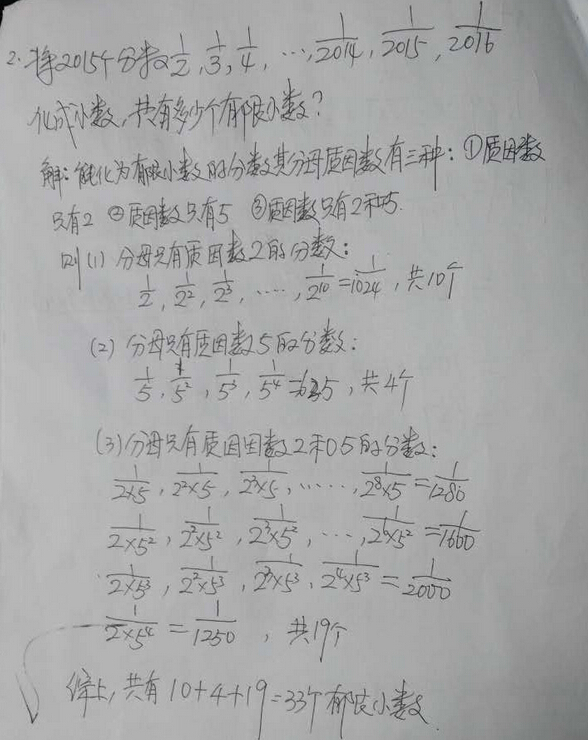 2. 将2015个分数1/2, 1/3, 1/4, …, 1/2014, 1/2015, 1/2016
化成小数,共有多少个有限小数?
解:能化为有限小数的分数其分母质因数有三种:①质因数
只有2 ②质因数只有5 ③质因数只有2和5.
则(1) 分母只有质因数2的分数:
1/2, 1/2², 1/2³, ……, 1/2¹⁰=1/1024, 共10个
(2) 分母只有质因数5的分数:
1/5, 1/5², 1/5³, 1/5⁴=1/625, 共4个
(3) 分母只有质因因数2和5的分数:
1/2×5, 1/2²×5, 1/2³×5, ……, 1/2⁸×5=1/1280
1/2×5², 1/2²×5², 1/2³×5², …, 1/2⁶×5²=1/1600
1/2×5³, 1/2²×5³, 1/2³×5³, 1/2⁴×5³=1/2000
1/2×5⁴=1/1250, 共19个
综上,共有10+4+19=33个有限小数